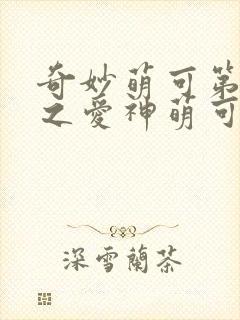 奇妙萌可第
之愛神萌可
深雪蘭茶